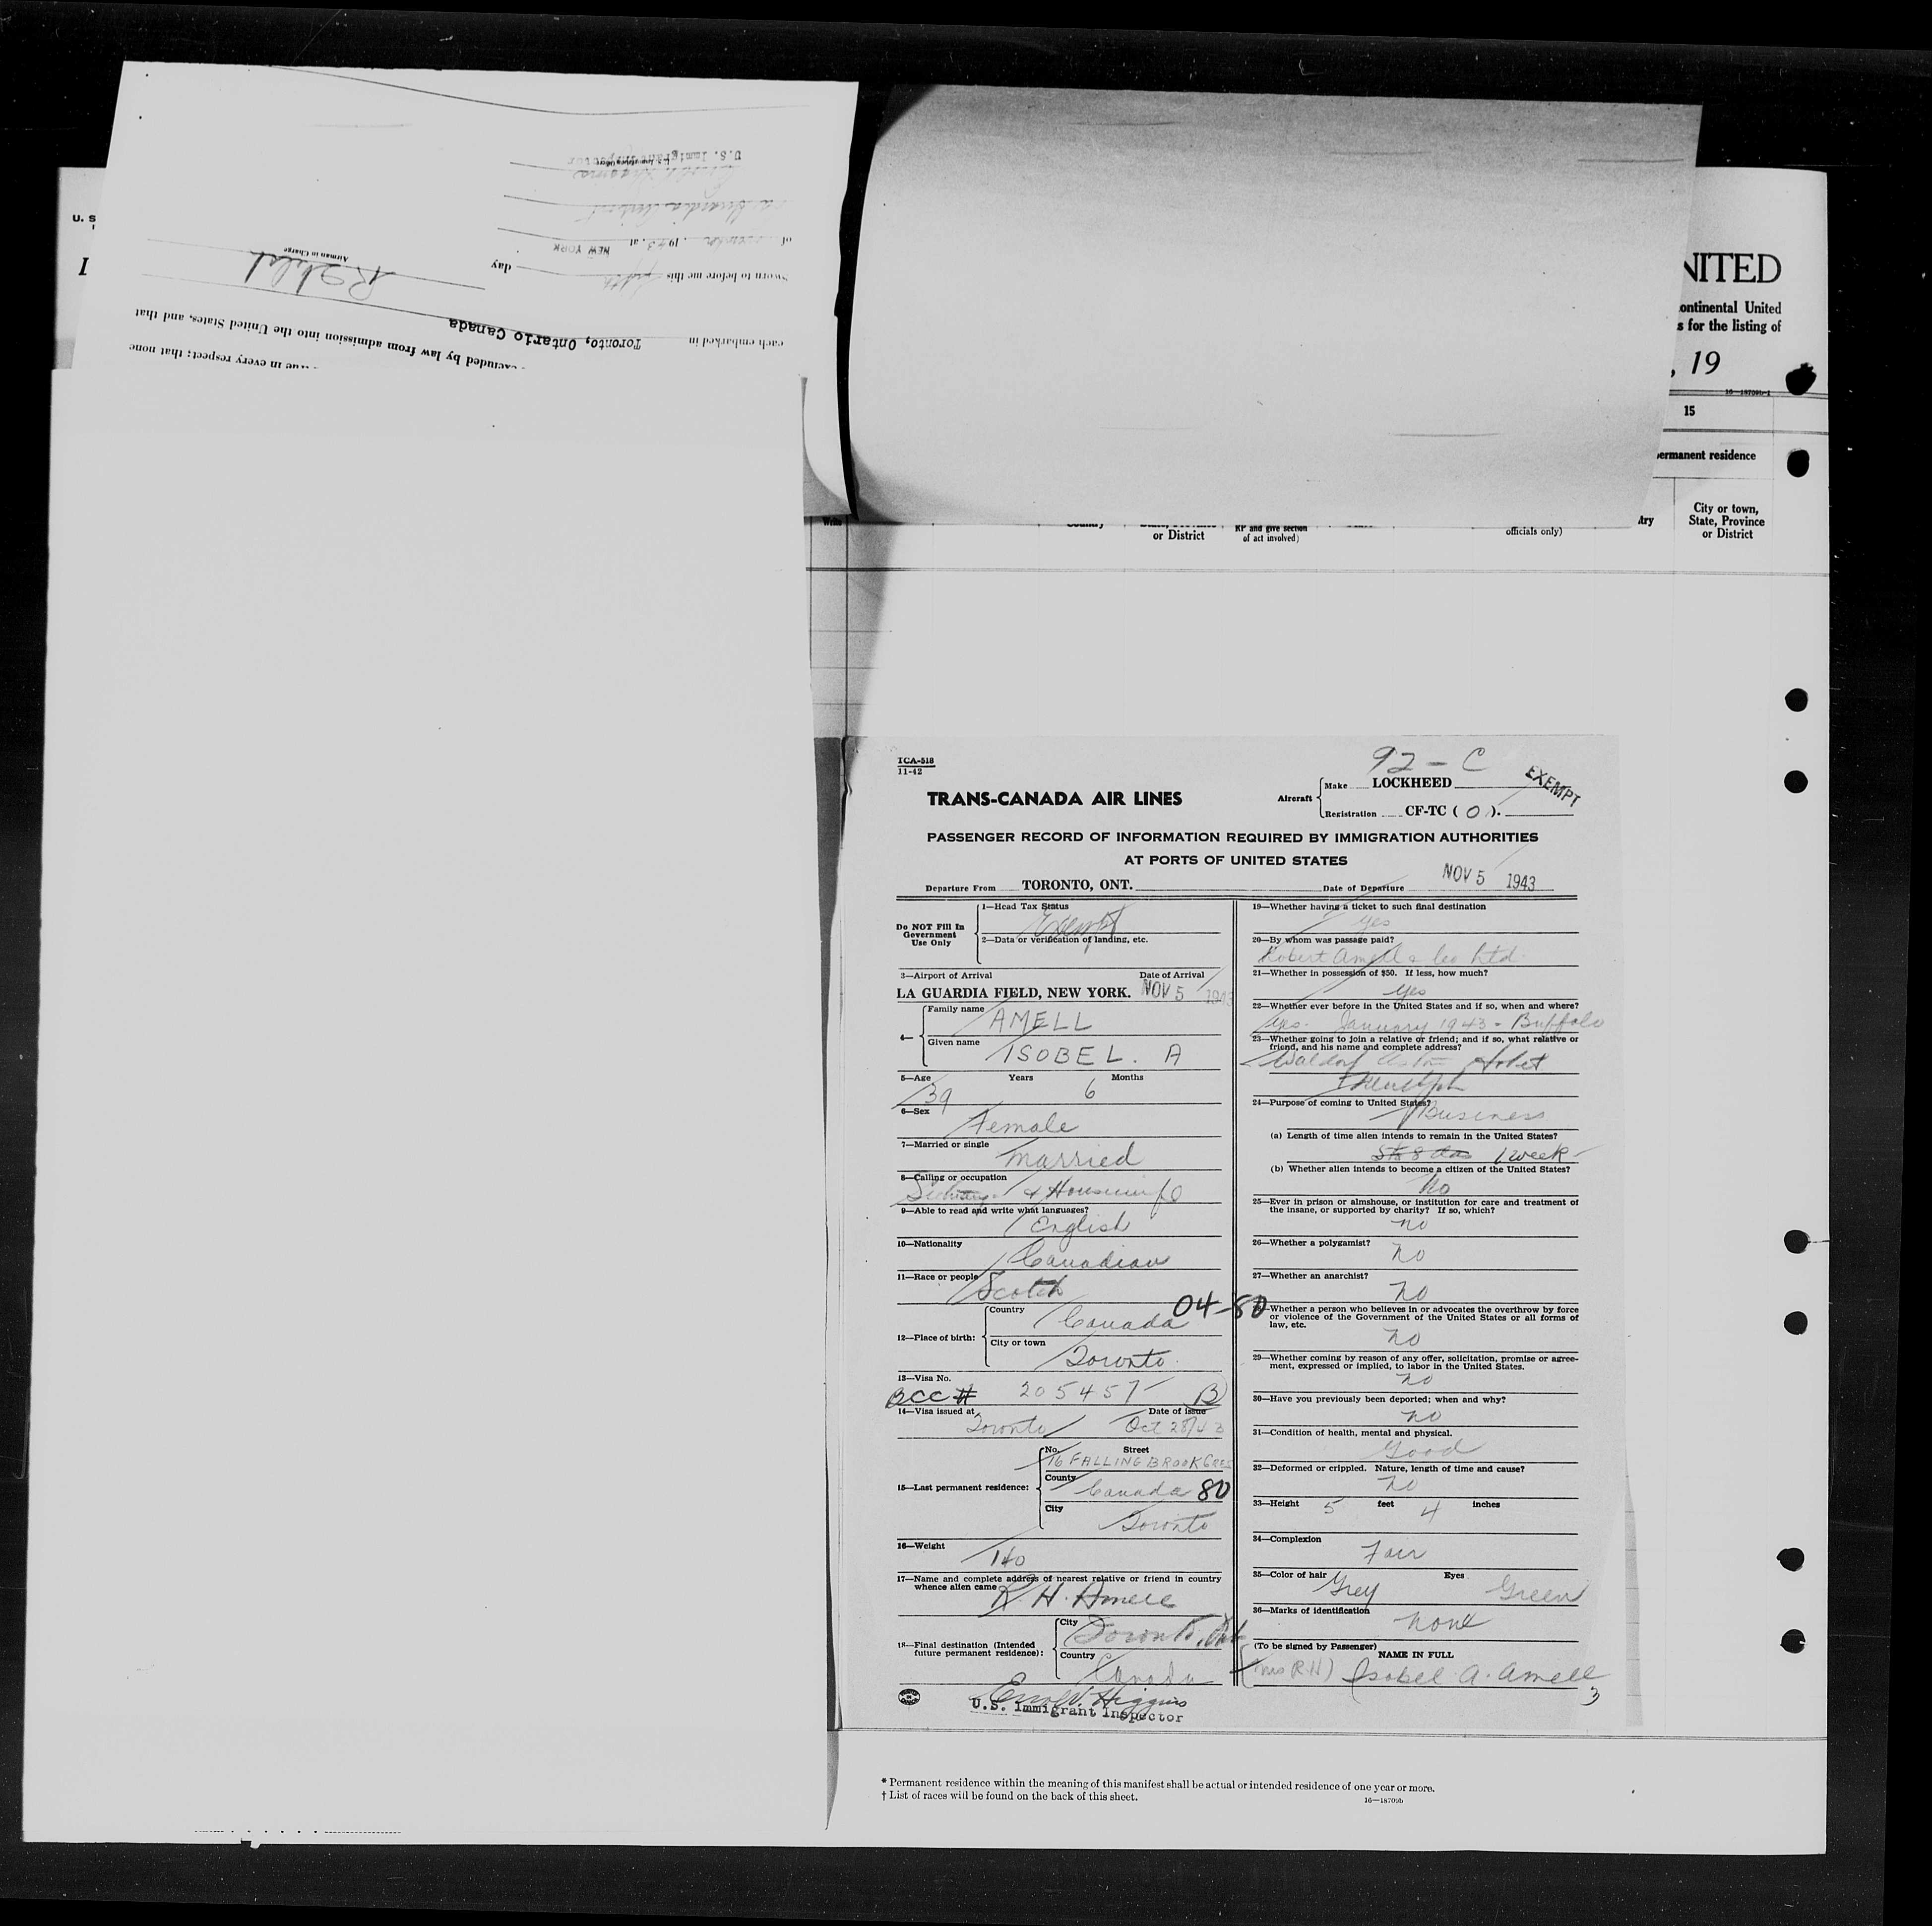 U. S
I
U.S. Immigrant Inspector
of , 1943, at NEW YORK
sworn to before me this day
Airman in Charge
each embarked in Toronto, Ontario Canada
excluded by law from admission into the United States, and that
true in every respect; that none
NITED
ontinental United
s for the listing of
, 19
16—18709b-1
15
ermanent residence
City or town,
State, Province
or District
or District
RP and give section
of act involved)
officials only)
92 - C
TCA-518
11-42
TRANS-CANADA AIR LINES
Aircraft
Make LOCKHEED
Registration CF-TC ( O ).
EXEMPT
PASSENGER RECORD OF INFORMATION REQUIRED BY IMMIGRATION AUTHORITIES
AT PORTS OF UNITED STATES
Departure From TORONTO, ONT. Date of Departure NOV 5 1943
Do NOT Fill In
Government
Use Only
1—Head Tax Status
Exempt
2—Data or verification of landing, etc.
3—Airport of Arrival Date of Arrival
LA GUARDIA FIELD, NEW YORK. NOV 5 1943
4—
Family name
AMELL
Given name
ISOBEL. A
5—Age Years Months
39 6
6—Sex
Female
7—Married or single
Married
8—Calling or occupation
& Housewife
9—Able to read and write what languages?
English
10—Nationality
Canadian
11—Race or people
Scotch
12—Place of birth:
Country
Canada 04-80
City or town
Toronto.
13—Visa No.
BCC # 205457 B
14—Visa issued at Date of issue
Toronto Oct 28/43
15—Last permanent residence:
No. Street
16 FALLINGBROOK CRES
County
Canada 80
City
Toronto
16—Weight
140
17—Name and complete address of nearest relative or friend in country
whence alien came
R. H. Amell
18—Final destination (Intended
future permanent residence):
City
Toronto, Ont
Country
Canada
Higgins
U.S. Immigrant Inspector
19—Whether having a ticket to such final destination
Yes
20—By whom was passage paid?
Robert Amell & Co Ltd
21—Whether in possession of $50. If less, how much?
Yes
22—Whether ever before in the United States and if so, when and where?
Yes. January 1943 - Buffalo
23—Whether going to join a relative or friend; and if so, what relative or
friend, and his name and complete address?
Waldorf Astor Hotel
New York
24—Purpose of coming to United States?
Business
(a) Length of time alien intends to remain in the United States?
5 to 8 das 1 week
(b) Whether alien intends to become a citizen of the United States?
No
25—Ever in prison or almshouse, or institution for care and treatment of
the insane, or supported by charity? If so, which?
no
26—Whether a polygamist?
no
27—Whether an anarchist?
no
Whether a person who believes in or advocates the overthrow by force
or violence of the Government of the United States or all forms of
law, etc.
no
29—Whether coming by reason of any offer, solicitation, promise or agree-
ment, expressed or implied, to labor in the United States.
no
30—Have you previously been deported; when and why?
no
31—Condition of health, mental and physical.
Good
32—Deformed or crippled. Nature, length of time and cause?
no
33—Height 5 feet 4 inches
34—Complexion
Fair
35—Color of hair Eyes
Grey Green
36—Marks of identification
none
(To be signed by Passenger)
NAME IN FULL
(Mrs R.H) Isobel A. Amell
3
* Permanent residence within the meaning of this manifest shall be actual or intended residence of one year or more.
† List of races will be found on the back of this sheet.
16—18709b